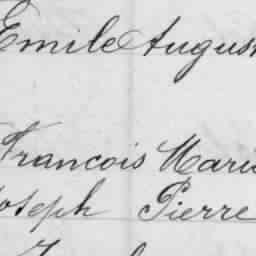 Emile August
Francois Marie
Joseph Pierre